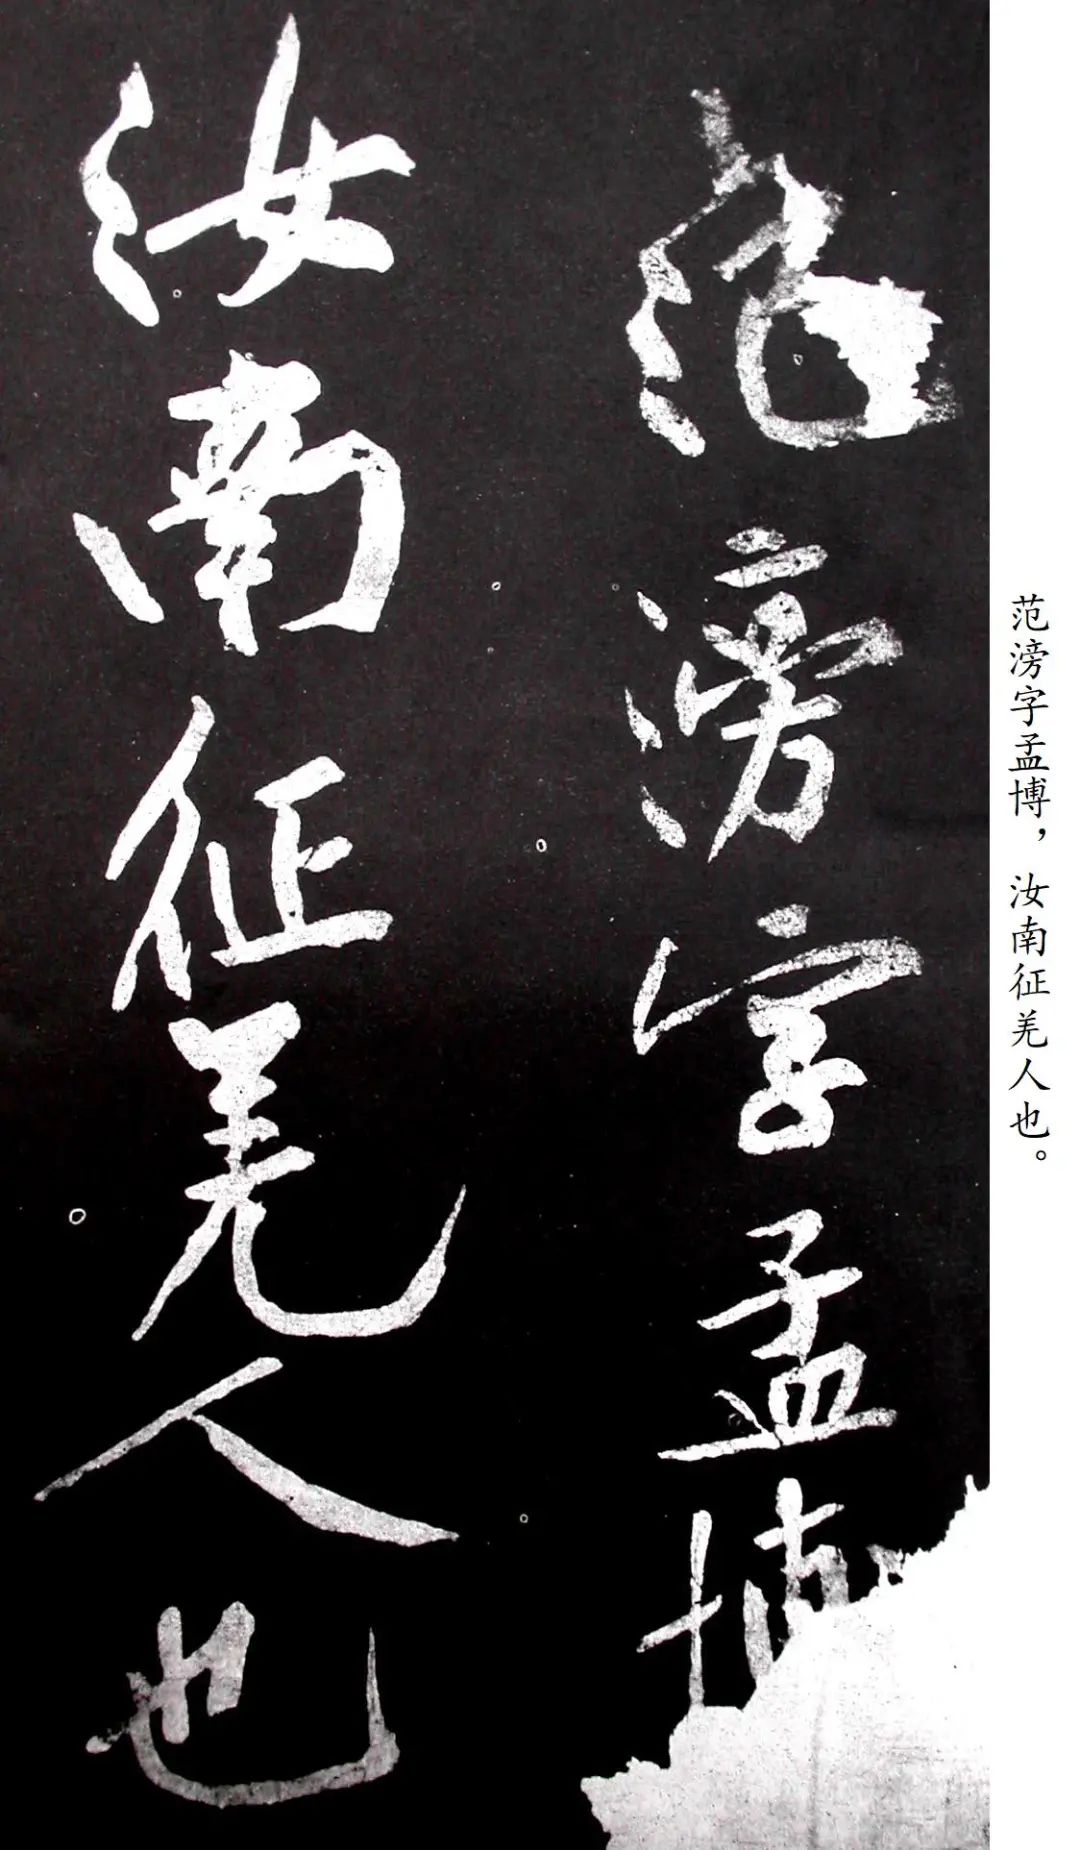 范滂字孟博
汝南征羌人也
范滂字孟博，汝南征羌人也。